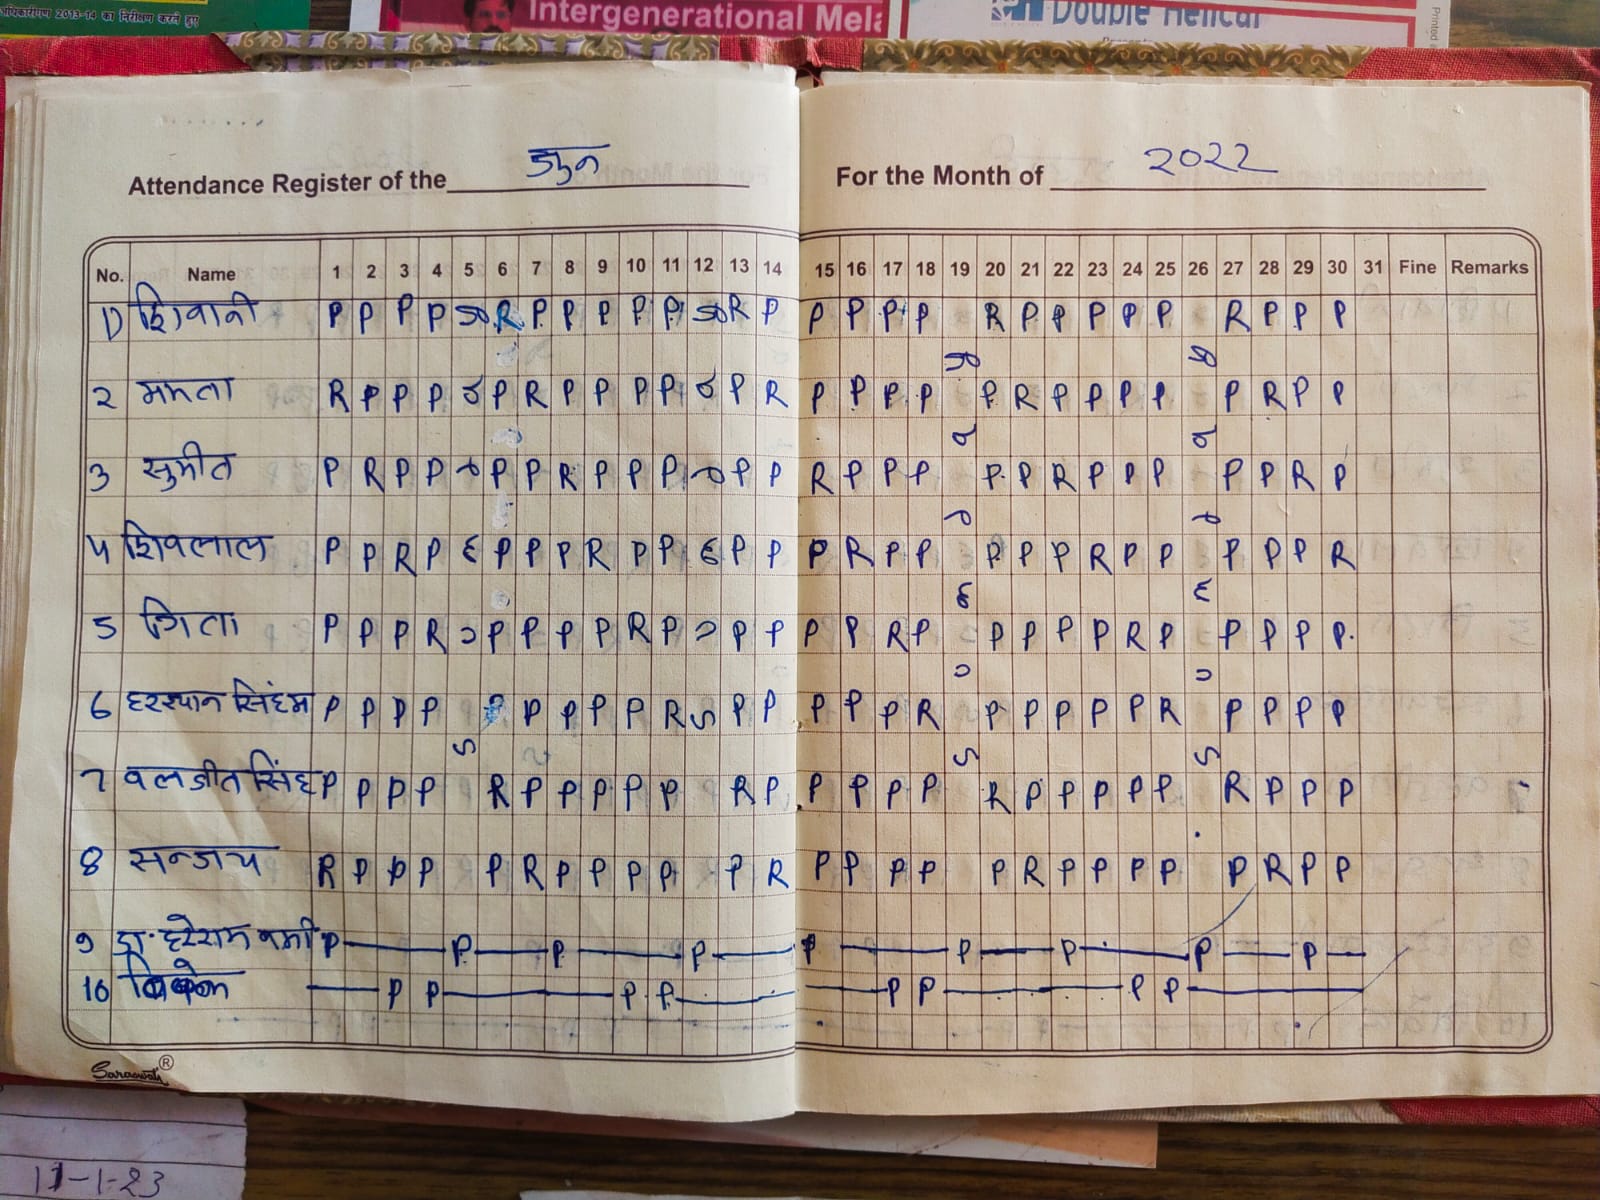 अधिकारीगण 2013-14 का निरीक्षण करते हुए
Intergenerational Mela
Double Helical
Printed
Attendance Register of the जुन
For the Month of 2022
No. Name 1 2 3 4 5 6 7 8 9 10 11 12 13 14 15 16 17 18 19 20 21 22 23 24 25 26 27 28 29 30 31 Fine Remarks
1) शिवानी P P P P R P P P P P R P P P P P R P P P P P R P P P
2 ममता R P P P P R P P P P P R P P P P P R P P P P P R P P
3 सुमीत P R P P P P R P P P P P R P P P P P R P P P P P R P
4 शिवलाल P P R P P P P R P P P P P R P P P P P R P P P P P R
5 गिता P P P R P P P P R P P P P P R P P P P P R P P P P P
6 सिंह P P P P P P P P P R P P P P P R P P P P P R P P P P
7 वलजीत सिंह P P P P R P P P P P R P P P P P R P P P P P R P P P
8 सन्जय R P P P P R P P P P P R P P P P P R P P P P P R P P
9 डा. हरेराम P P P P P P P P P
10 P P P P P P P P
Saraswati ®
11-1-23